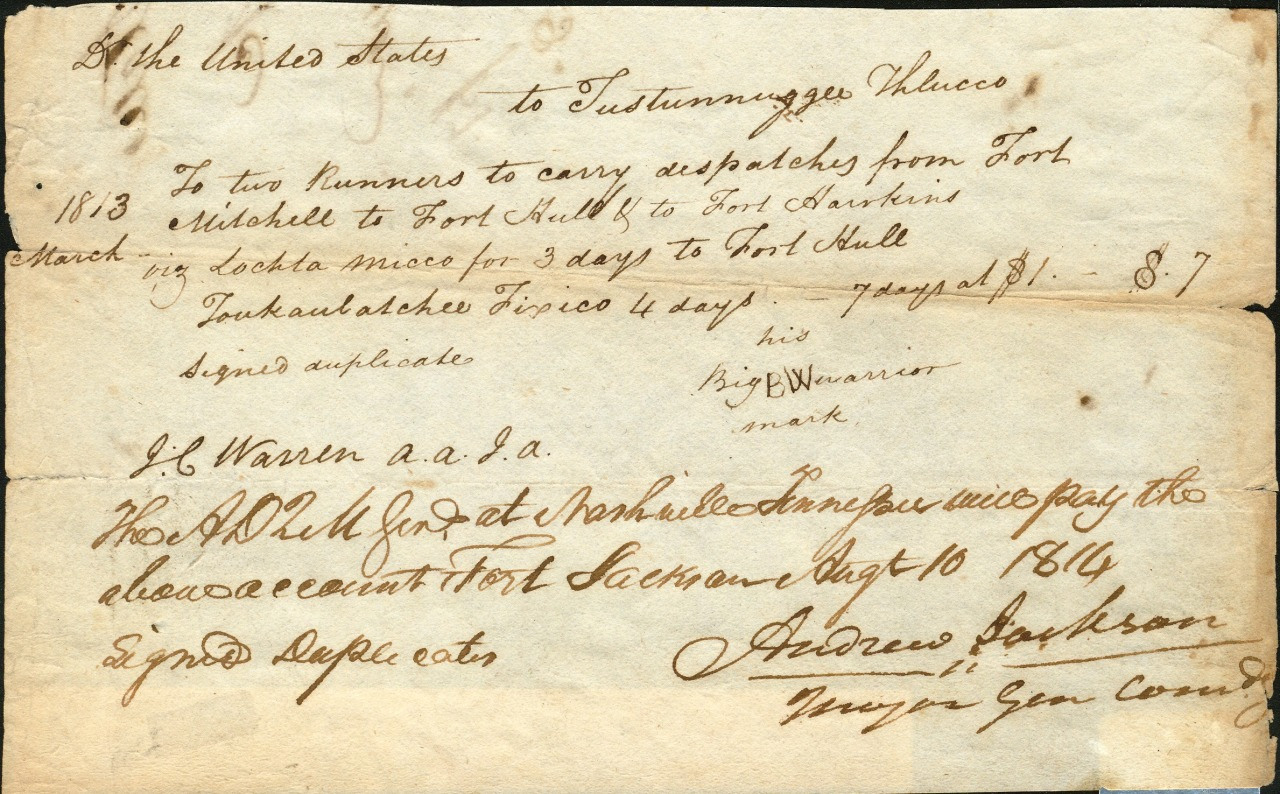 Dr. the United States
to Tustunnuggee Thlucco
To two Runners to carry despatches from Fort
1813 Mitchell to Fort Hull & to Fort Hawkins
March - viz Lochta Micco for 3 days to Fort Hull
Toukaubatchee Fixico 4 days . - 7 days at $1. - $. 7
signed duplicate
his
Big BW warrior
mark
J. C Warren a. a. I. a.
The A D Q M Genl. at Nashville Tennessee will pay the
above account Fort Jackson Augt 10 1814
Signed Duplicates
Andrew Jackson
Major Gen Comdg